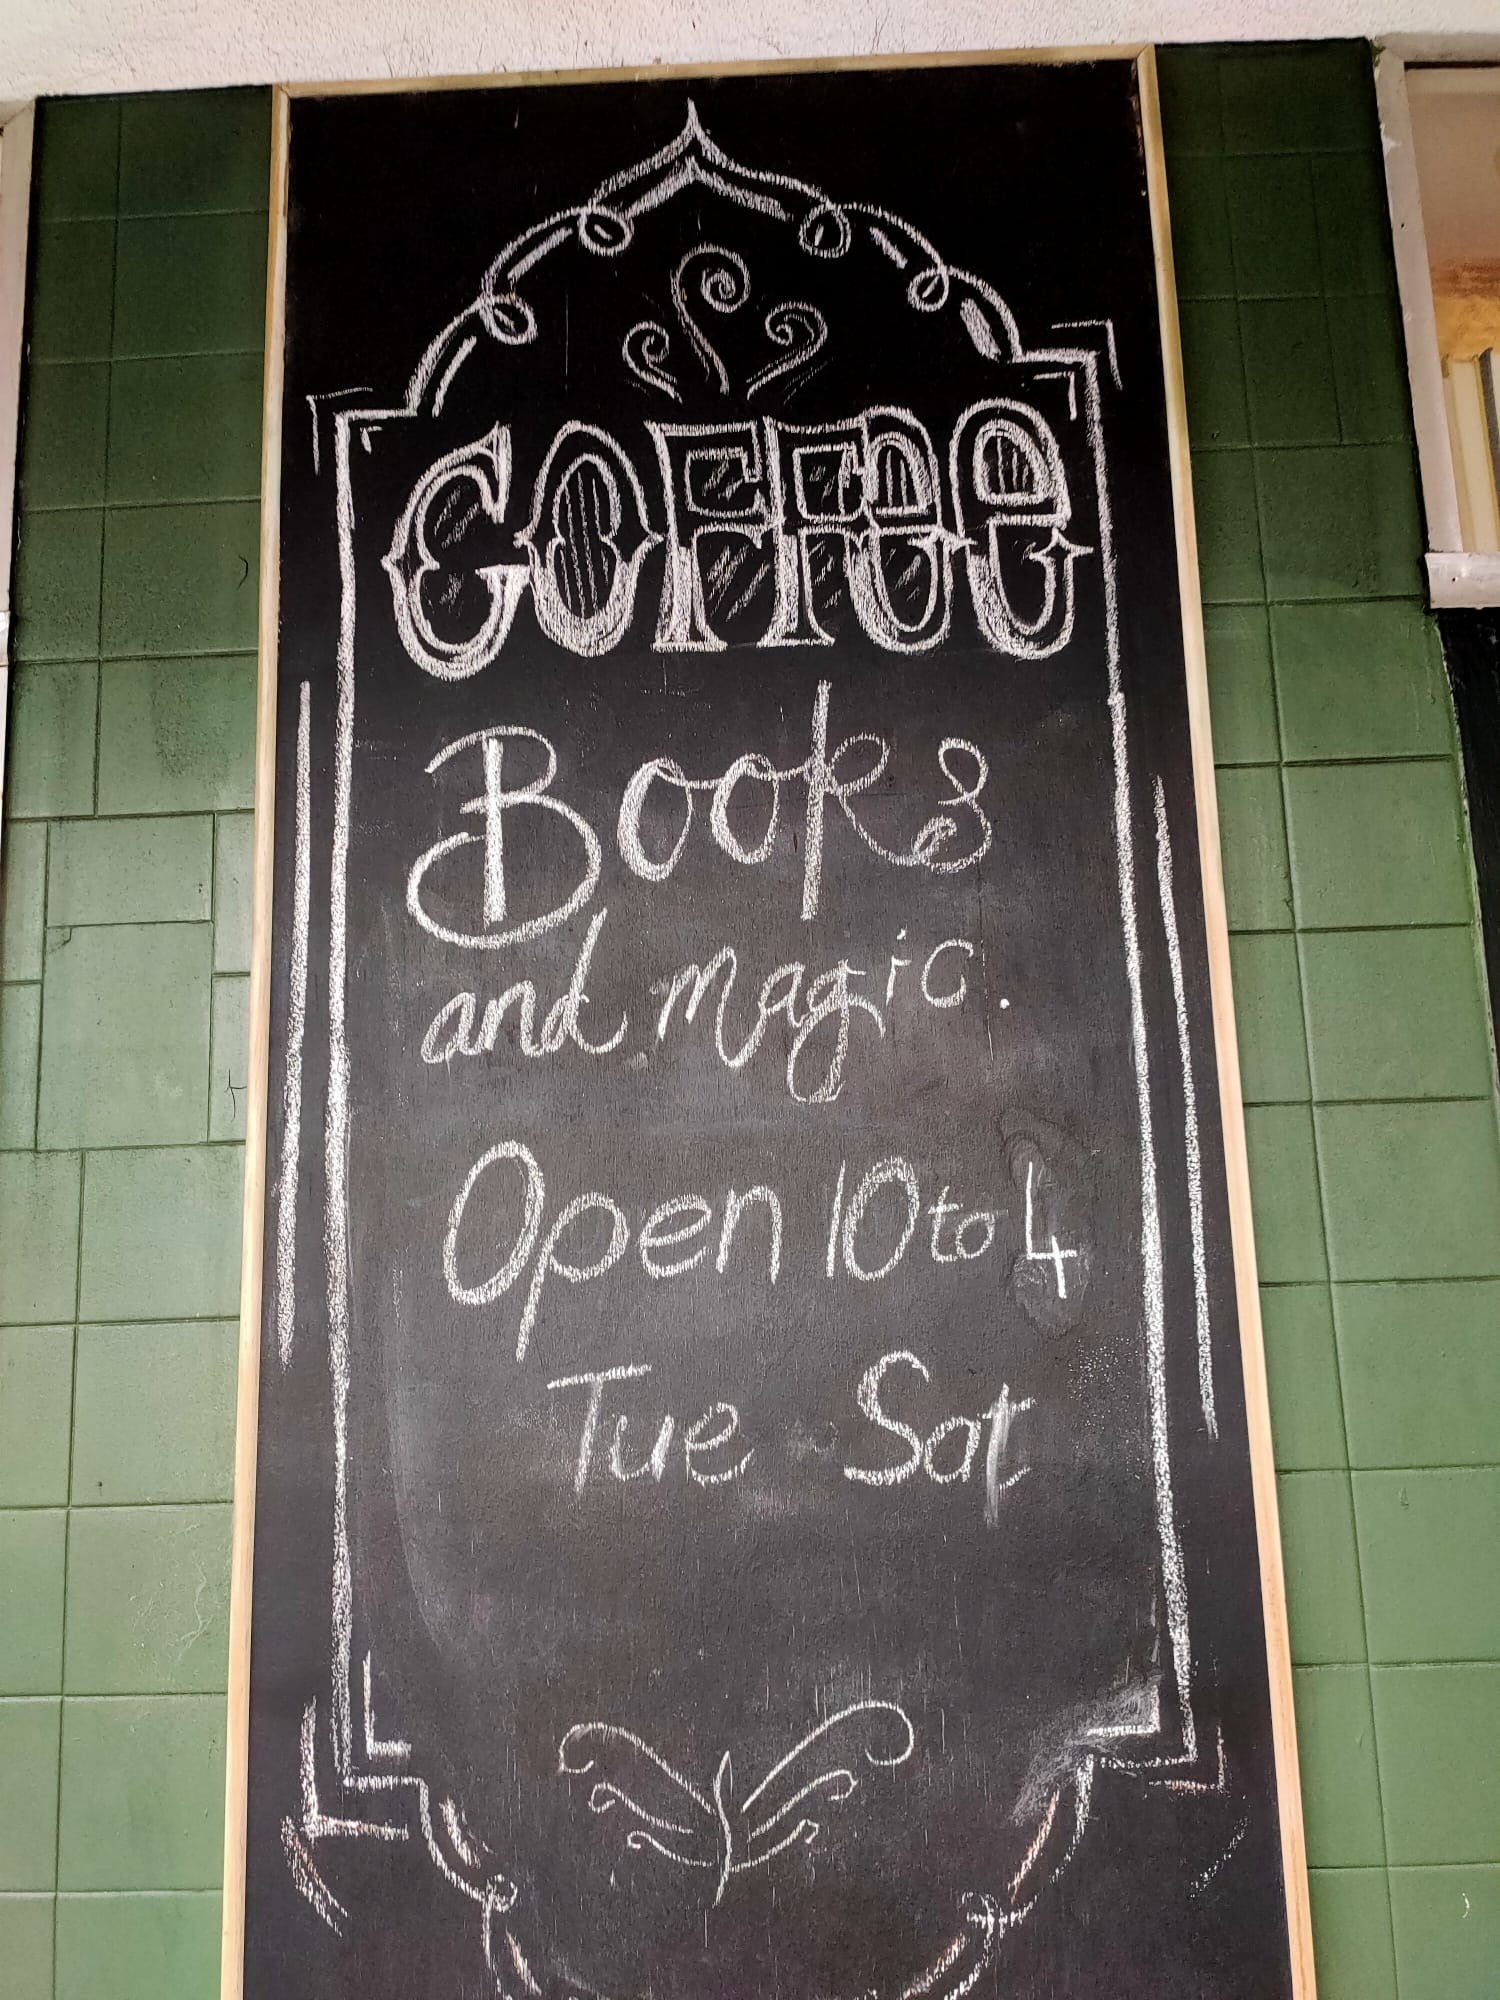 COFFee
Books
and magic.
Open 10 to 4
Tue Sat